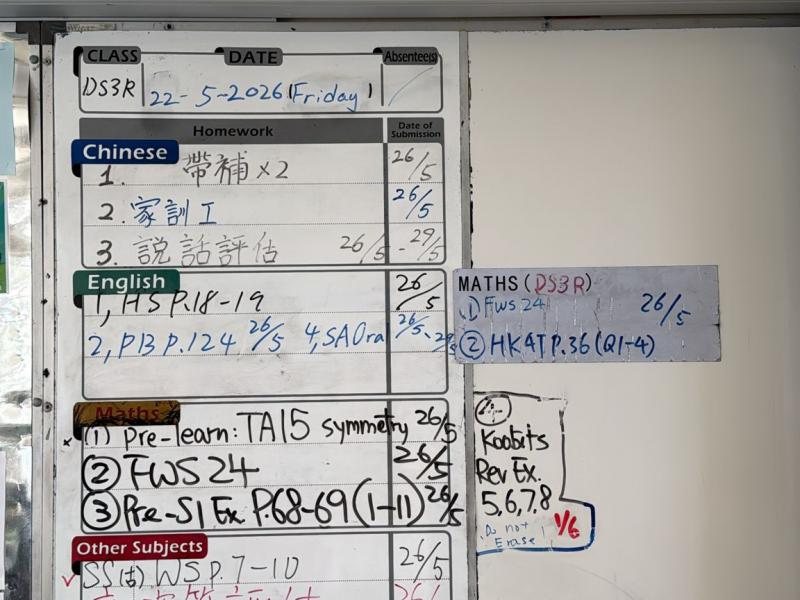 CLASS DATE Absentee(s)
DS3R 22-5-2026 (Friday) /
Homework Date of Submission
Chinese
1. 帶補×2 26/5
2. 家訓工 26/5
3. 說話評估 26/5 - 29/5
English
1, HS P.18-19 26/5
2, PB P.124 26/5 4, SA Oral 26/5 - 29/5
MATHS (DS3R)
① FWS 24 26/5
② HK4T P.36 (Q1-4)
Maths
(1) Pre-learn: TA15 symmetry 26/5
② FWS 24 26/5
③ Pre-S1 Ex P.68-69 (1-11) 26/5
④
Koobits
Rev Ex.
5,6,7,8
Do not
Erase! 1/6
Other Subjects
SS(古) WS P.7-10 26/5